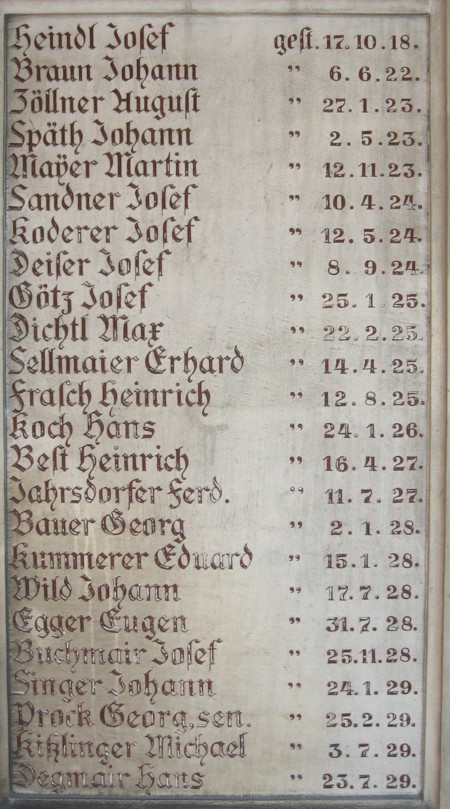 Heindl Josef gest. 17.10.18.
Braun Johann " 6.6.22.
Zöllner August " 27.1.23.
Späth Johann " 2.5.23.
Maÿer Martin " 12.11.23.
Sandner Josef " 10.4.24.
Koderer Josef " 12.5.24.
Deiser Josef " 8.9.24.
Götz Josef " 25.1.25.
Dichtl Max " 22.2.25.
Sellmaier Erhard " 14.4.25.
Frasch Heinrich " 12.8.25.
Koch Hans " 24.1.26.
Best Heinrich " 16.4.27.
Jahrsdorfer Ferd. " 11.7.27.
Bauer Georg " 2.1.28.
Kummerer Eduard " 15.1.28.
Wild Johann " 17.7.28.
Egger Eugen " 31.7.28.
Buchmair Josef " 25.11.28.
Singer Johann " 24.1.29.
Prock Georg, sen. " 25.2.29.
Kißlinger Michael " 3.7.29.
Degmair Hans " 23.7.29.